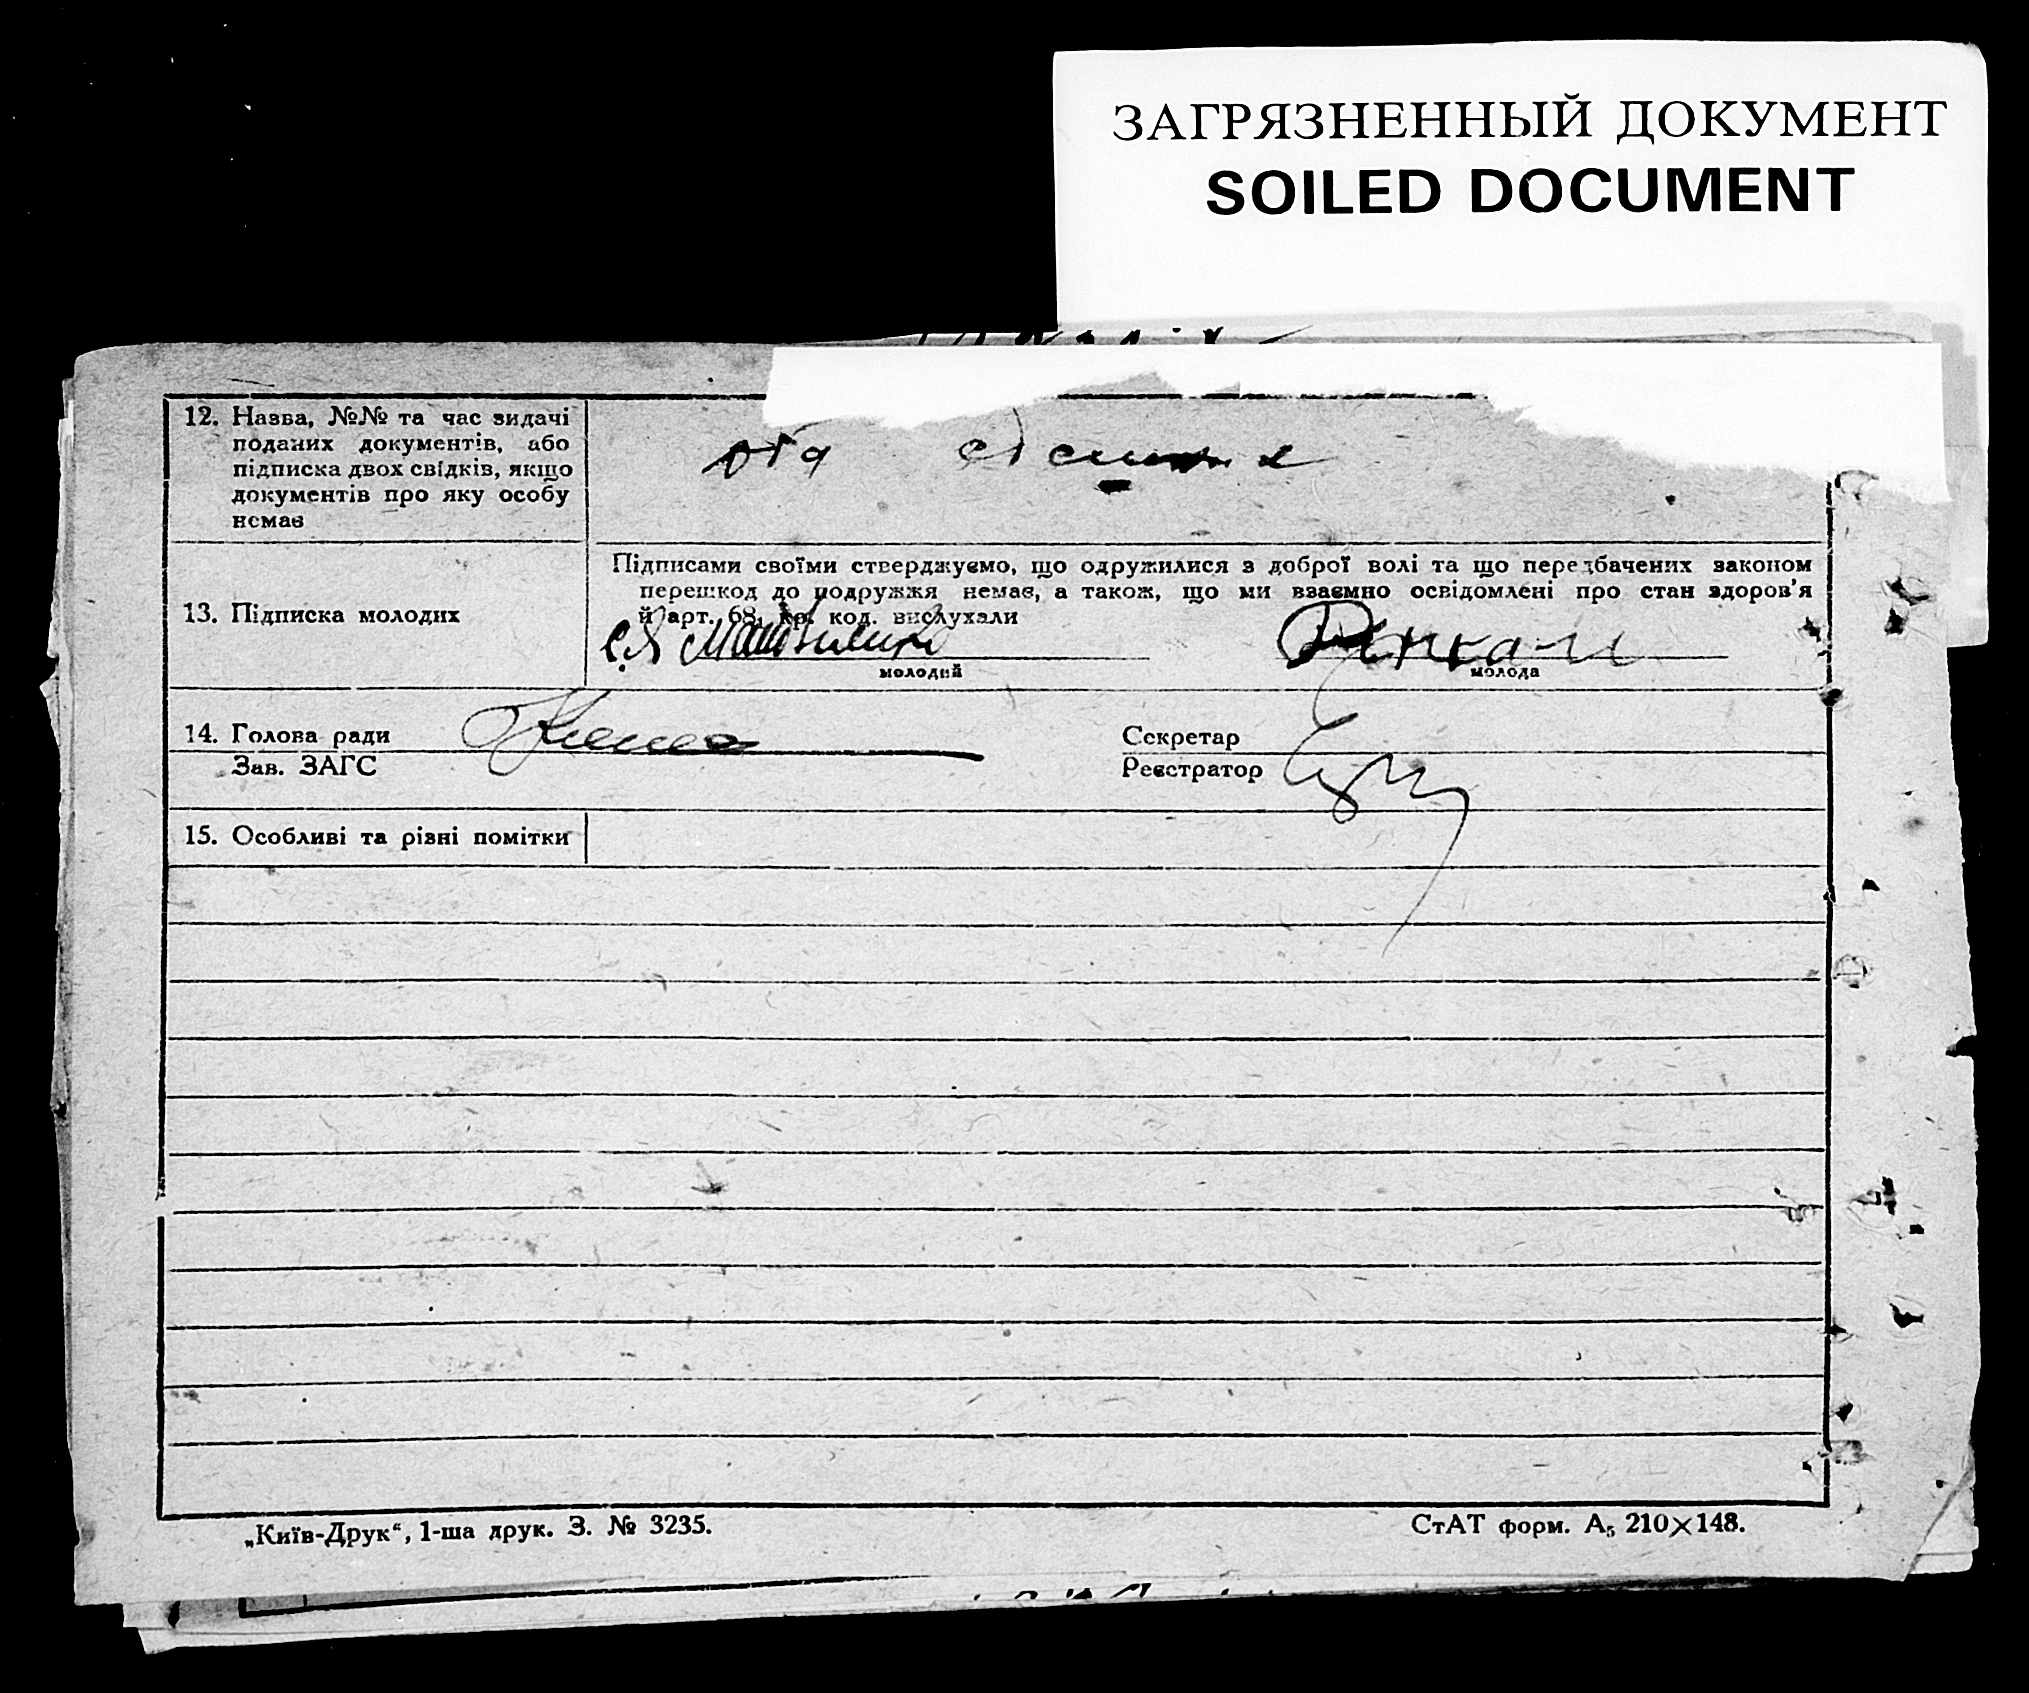 ЗАГРЯЗНЕННЫЙ ДОКУМЕНТ
SOILED DOCUMENT
12. Назва, №№ та час видачі
поданих документів, або
підписка двох свідків, якщо
документів про яку особу
немає
13. Підписка молодих
Підписами своїми стверджуємо, що одружилися з доброї волі та що передбачених законом
перешкод до подружжя немає, а також, що ми взаємно освідомлені про стан здоров'я
й арт. 68, кр. код. вислухали
молодий
молода
14. Голова ради
Секретар
Зав. ЗАГС
Реєстратор
15. Особливі та різні помітки
„Київ-Друк“, 1-ша друк. З. № 3235.
СтАТ форм. А₅ 210×148.